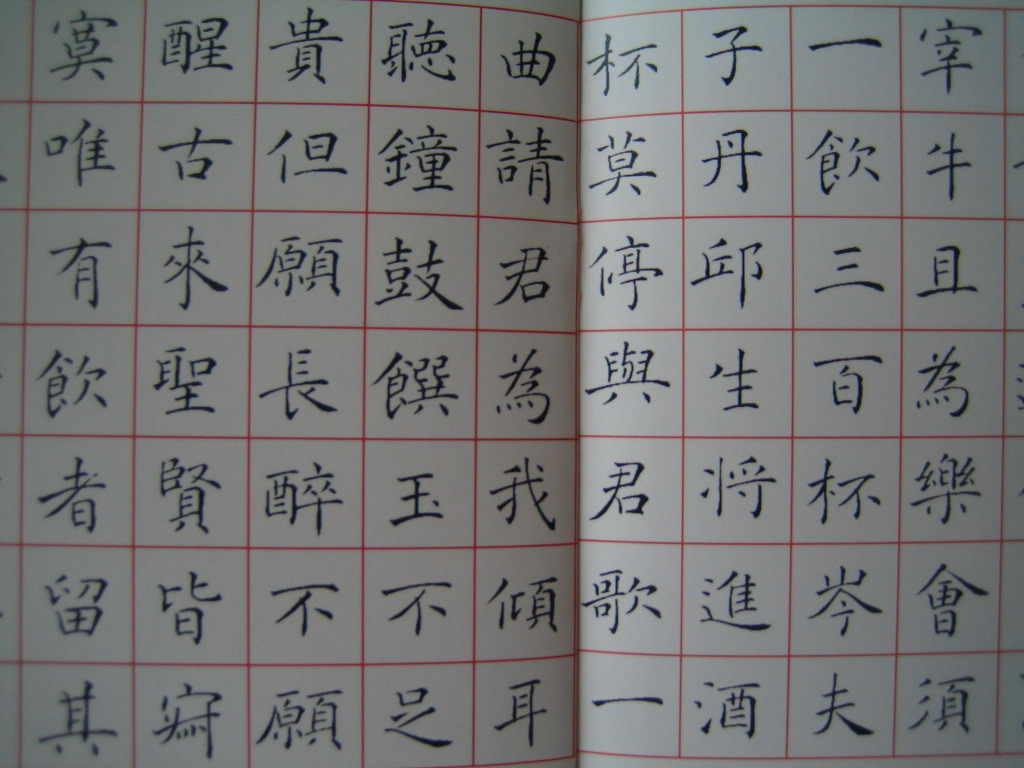 宰牛且為樂會須
一飲三百杯岑夫
子丹邱生將進酒
杯莫停與君歌一
曲請君為我傾耳
聽鐘鼓饌玉不足
貴但願長醉不願
醒古來聖賢皆寂
寞唯有飲者留其